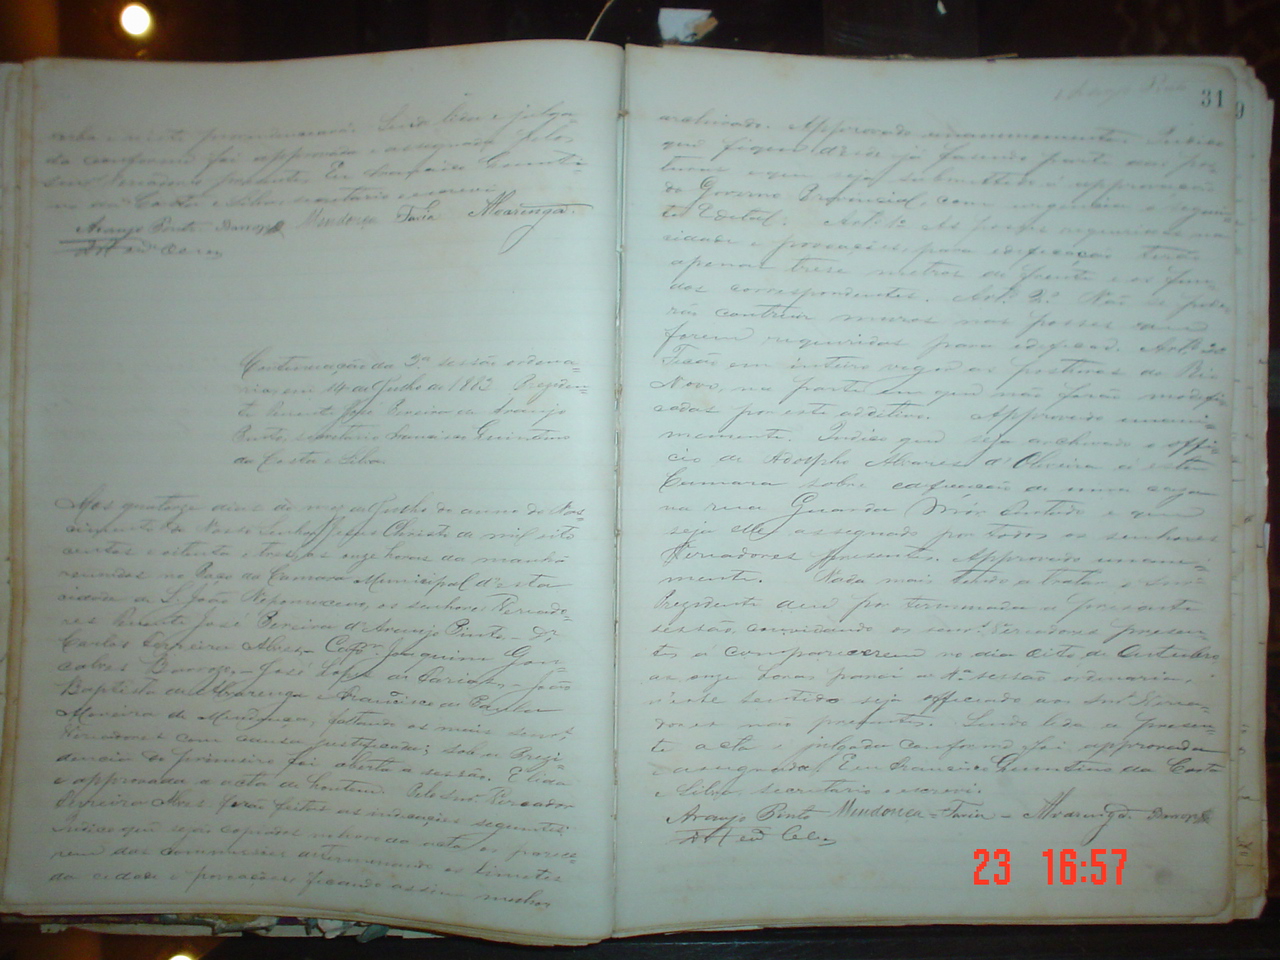 da conforme foi approvada e assignada pelos
senrs Vereadores presentes. Eu Francisco Quinti-
no da Costa e Silva, secretario o escrevi.
Araujo Pinto Mendonça Faria Alvarenga.
Continuação da 3ª sessão ordina-
ria, em 14 de Julho de 1883 Presiden-
te Tenente José Pereira de Araujo
Pinto, secretario Francisco Quintino
da Costa e Silva.
Aos quatorze dias do mez de Julho do anno do Nas-
cimento de Nosso Senhor Jesus Christo de mil oito
centos e oitenta e tres, as onze horas da manhã
reunidos no Paço da Camara Municipal d'esta
cidade de S. João Nepomuceno, os senhores Vereado-
res Tenente José Pereira d'Araujo Pinto - Dr
Carlos Ferreira Alves - Capm Joaquim Gon-
calves - José Lopes de Faria - João
Baptista de Alvarenga e Francisco de Paula
Moreira de Mendonça, faltando os mais senrs
Vereadores com causa justificada; sob a Presi-
dencia do primeiro foi aberta a sessão. E lida
e approvada a acta de hontem. Pelo Snr. Vereador
Ferreira Alves forão feitas as indicações seguintes:
Indico que sejão copiados na acta os parece-
res das commissões determinando os limites
da cidade e povoações, ficando assim melhor
31
archivado. Approvado unanimemente. Indico
que fique desde já fazendo parte das pos-
turas e que seja submettido á approvação
do Governo Provincial com urgencia o seguin-
te Edital: Artº 1º As posses requeridas na
cidade e povoações, para edificação terão
apenas trese metros de frente e os fun-
dos correspondentes. Artº 2º Não se pode-
rão contruir muros nas posses que
forem requeridas para edificar. Artº 3º
Ficão em inteiro vigor as posturas do Rio
Novo, na parte em que não forão modifi-
cadas por este additivo. Approvado unani-
memente. Indico que seja archivado o offi-
cio de Adolpho Alvares d'Oliveira a esta
Camara sobre edificação de uma casa
na rua Guarda Mór Furtado e que
seja elle assignado por todos os senhores
Vereadores presentes. Approvado unanime-
mente. Nada mais tendo a tratar o Snr
Presidente deu por terminada a presente
sessão, convidando os senrs Vereadores presen-
tes a comparecerem no dia oito de Outubro
as onze horas para a 4ª sessão ordinaria,
n'este sentido seja officiado aos Snrs Verea-
dores não presentes. Sendo lida a presen-
te acta e julgada conforme foi approvada
e assignada. Eu Francisco Quintino da Costa
e Silva, secretario o escrevi.
Araujo Pinto Mendonça - Faria - Alvarenga.
23 16:57